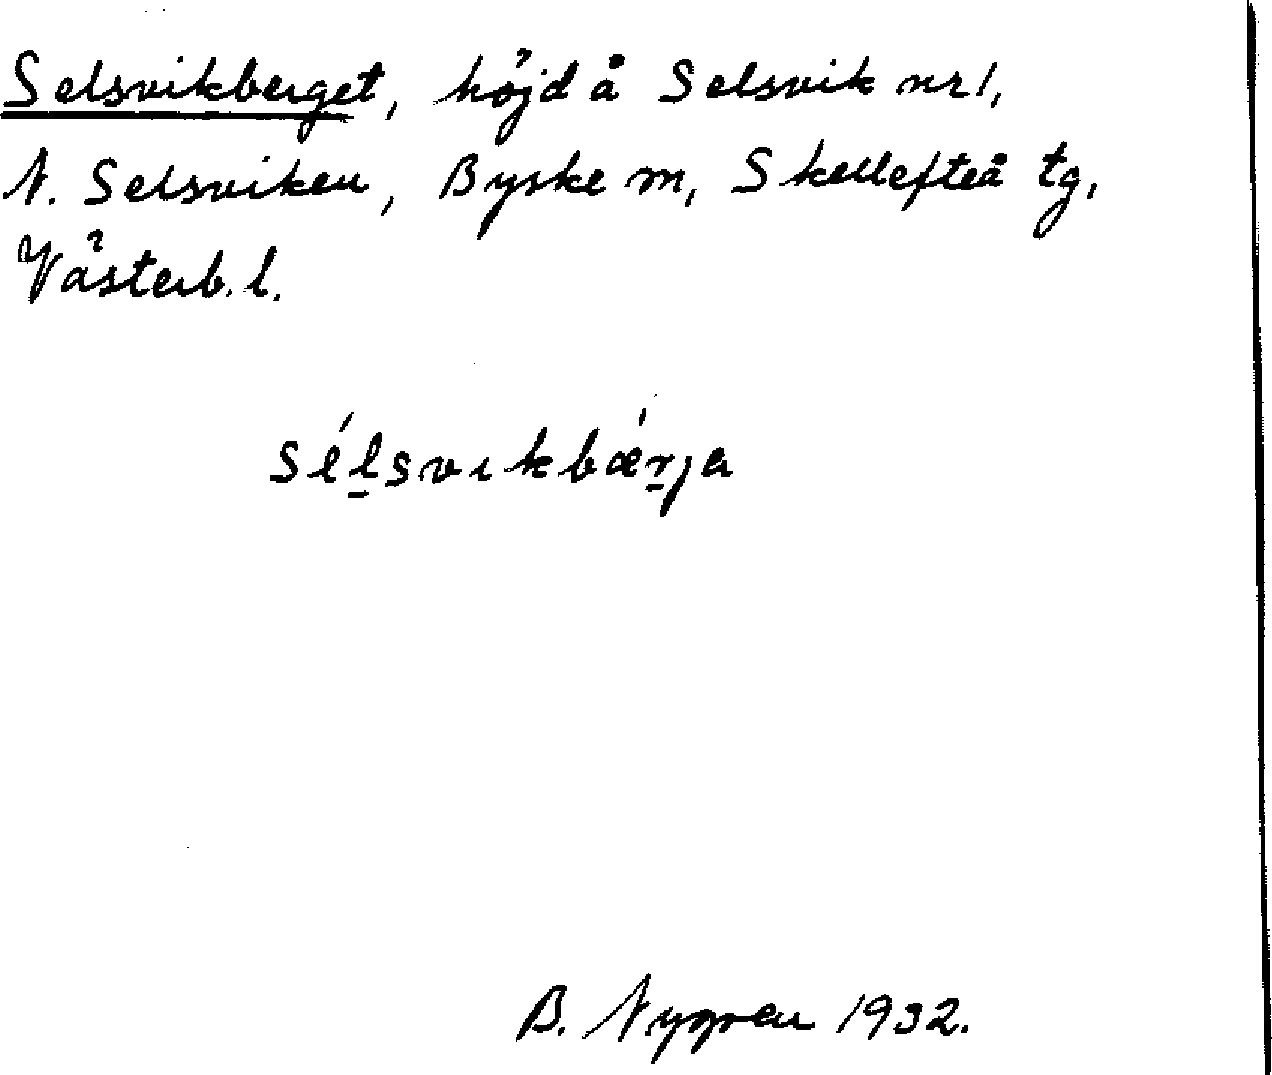 Selsvikberget, höjd å Selsvik nr 1,
N. Selsviken, Byske m, Skellefteå tg,
Västerb. l.
sélsvıkbǽrja
B. Nygren 1932.